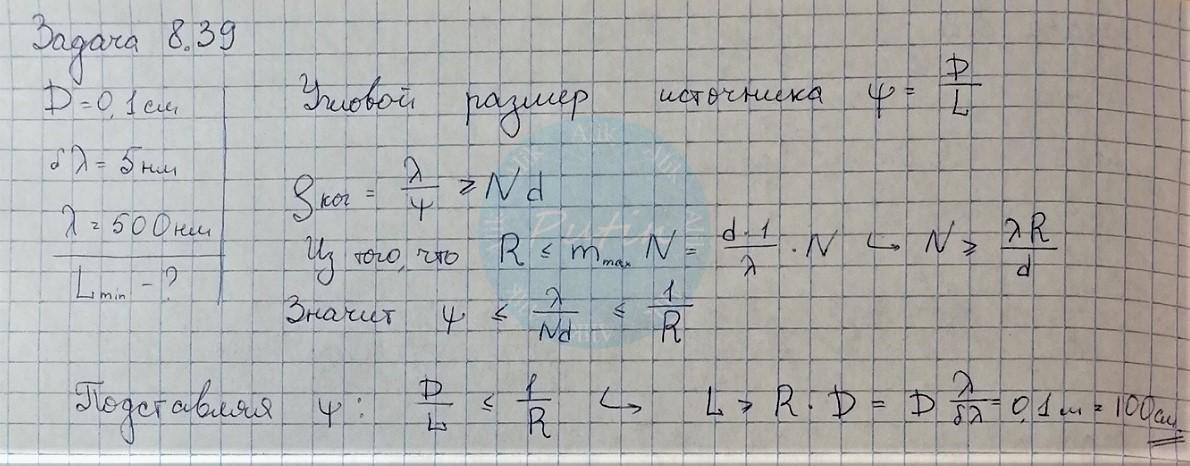 Задача 8.39
D = 0,1 см
δλ = 5 нм
λ = 500 нм
L min - ?
Угловой размер источника ψ = D/L
ρ ког = λ/ψ ≥ N d
Из того, что R ≤ m max N = d·1/λ · N ↳ N ≥ λR/d
Значит ψ ≤ λ/Nd ≤ 1/R
Подставляя ψ: D/L ≤ 1/R ↳ L ≥ R·D = D λ/δλ = 0,1 м = 100 см.